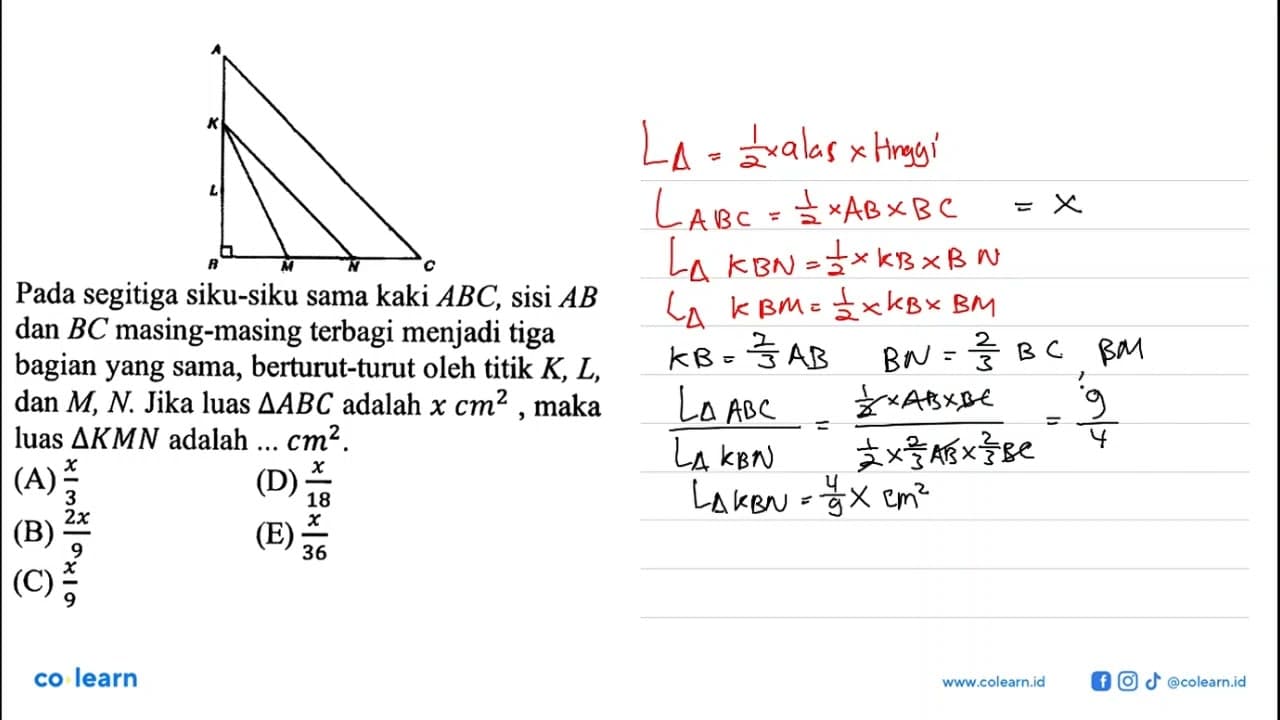 A
K
L
B
M
N
C
Pada segitiga siku-siku sama kaki ABC, sisi AB
dan BC masing-masing terbagi menjadi tiga
bagian yang sama, berturut-turut oleh titik K, L,
dan M, N. Jika luas ΔABC adalah x cm², maka
luas ΔKMN adalah ... cm².
(A) x/3
(B) 2x/9
(C) x/9
(D) x/18
(E) x/36
LΔ = 1/2 × alas × tinggi
L ABC = 1/2 × AB × BC = x
LΔ KBN = 1/2 × KB × BN
LΔ KBM = 1/2 × KB × BM
KB = 2/3 AB BN = 2/3 BC , BM
LΔ ABC / LΔ KBN = 1/2 × AB × BC / 1/2 × 2/3 AB × 2/3 BC = 9/4
LΔ KBN = 4/9 x cm²
co learn
www.colearn.id
@colearn.id